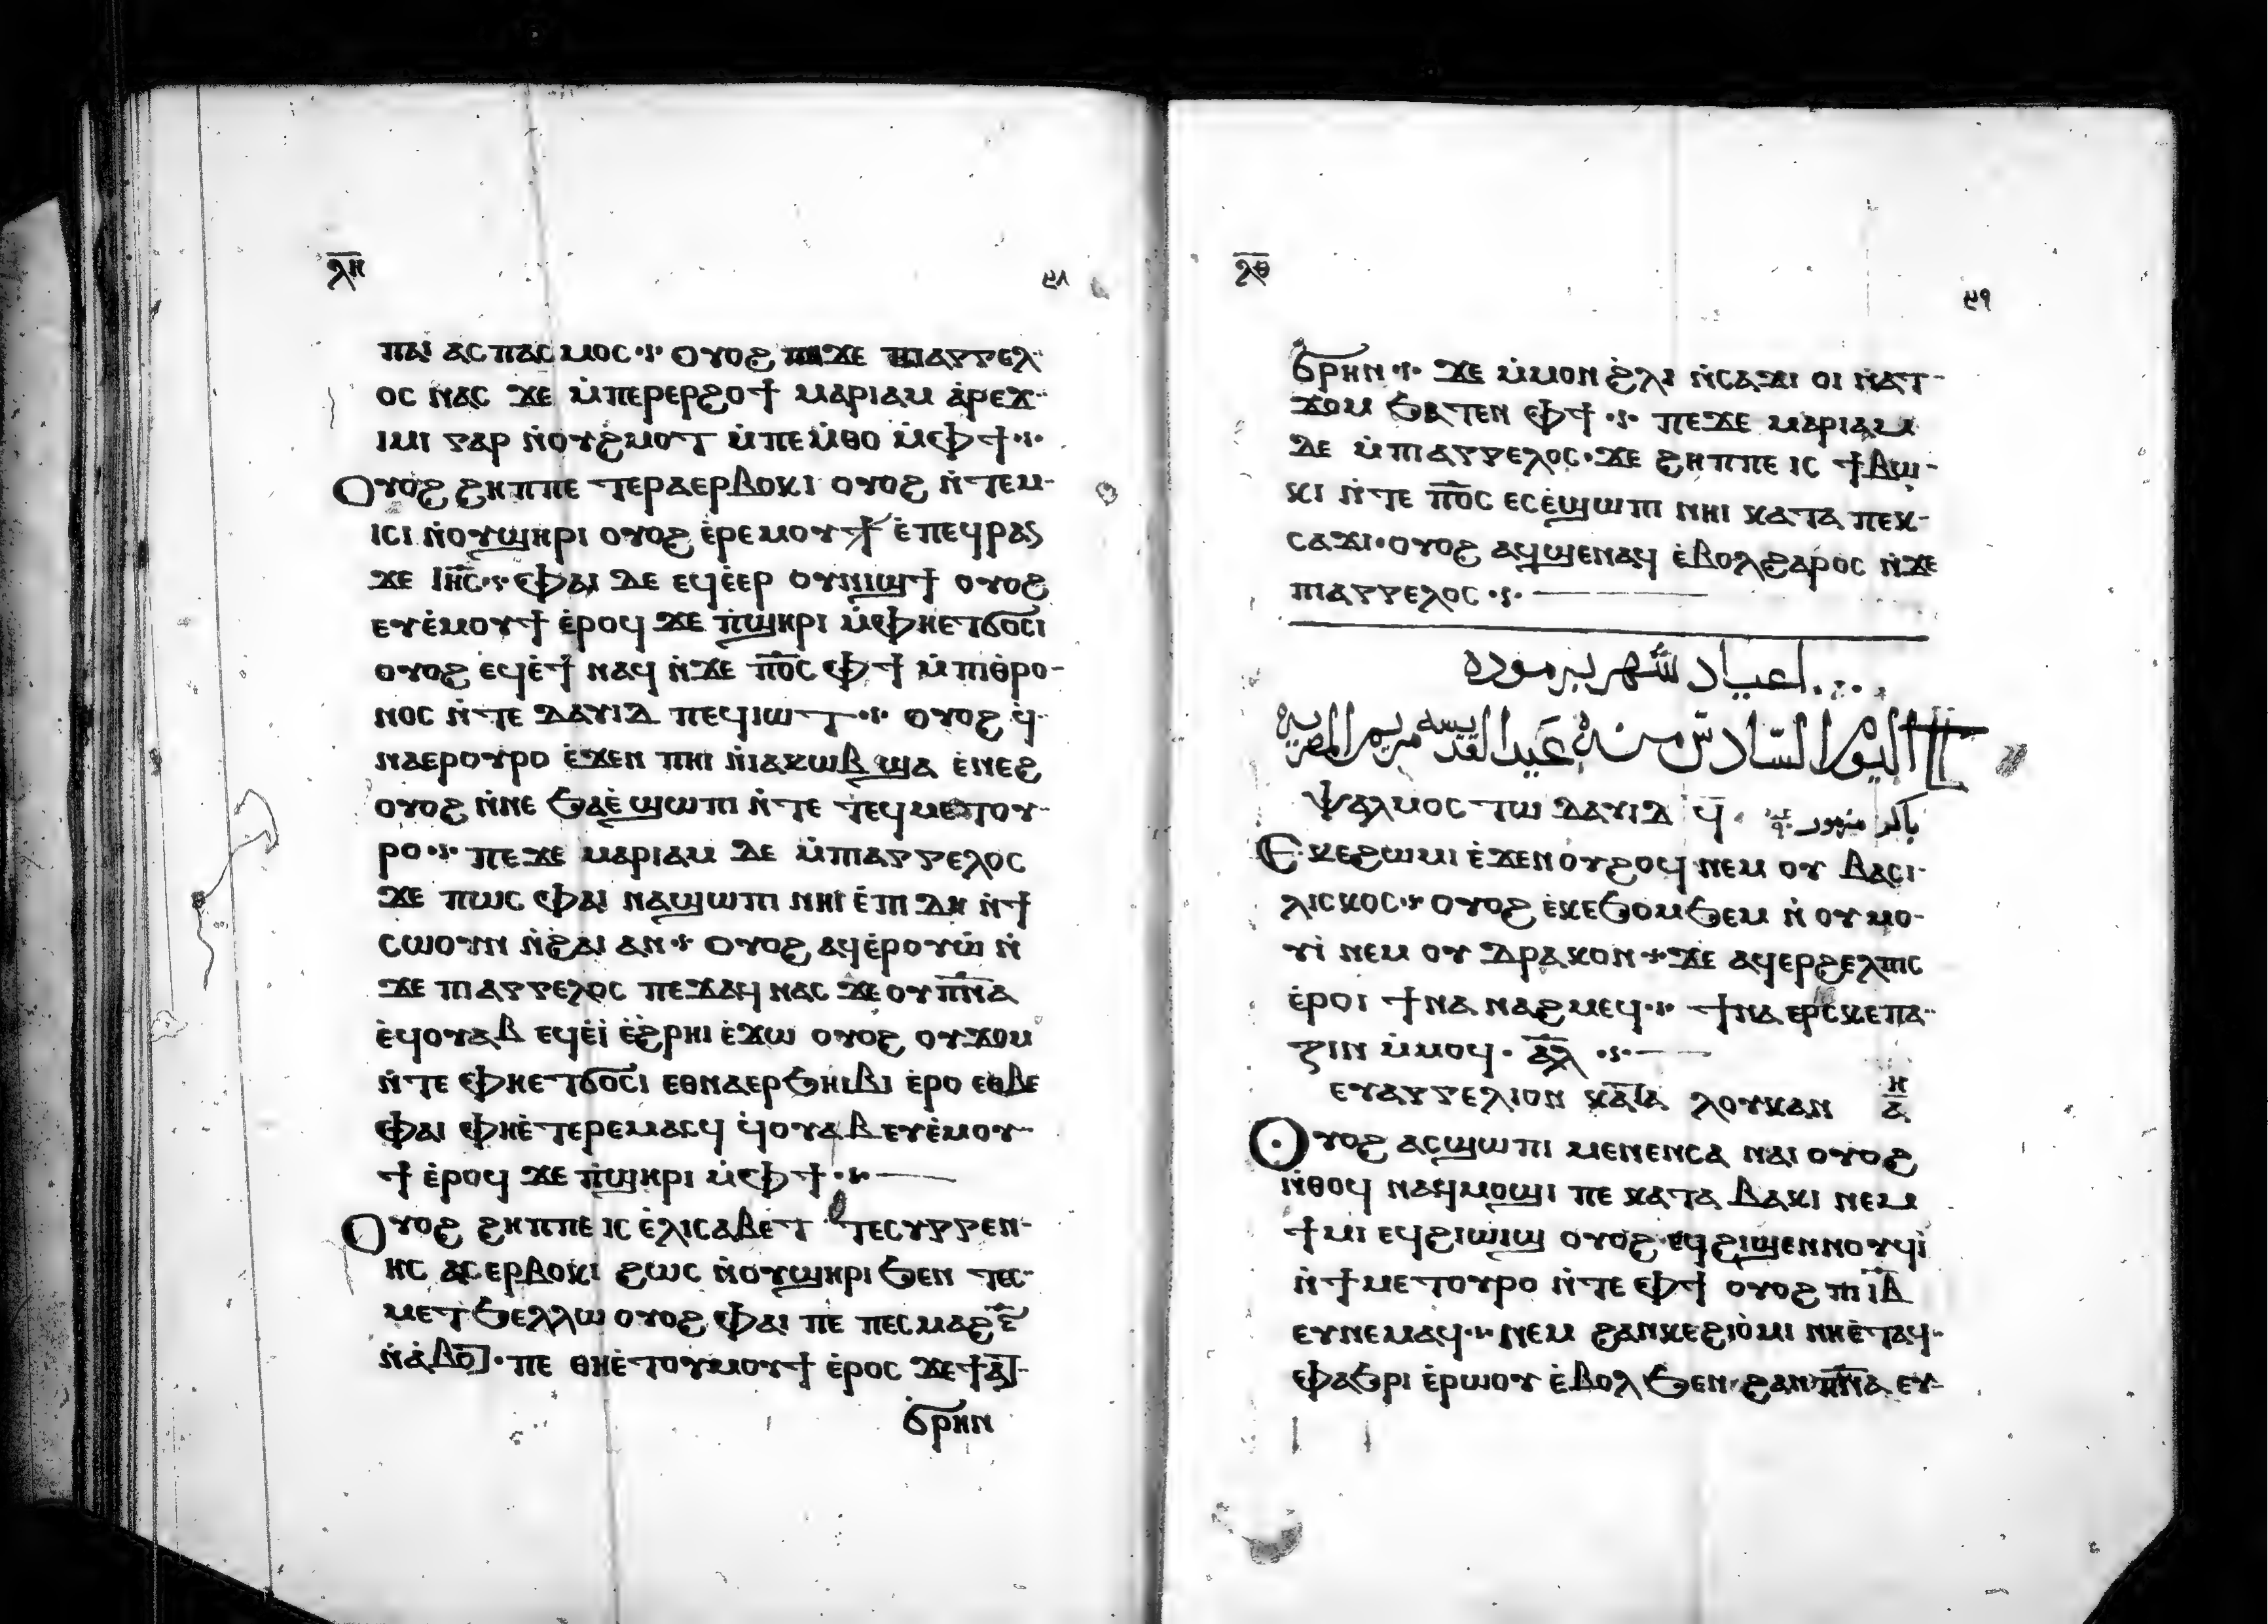 ⲗⲏ
ⲡⲁⲓ ⲁⲥⲡⲁⲥⲙⲟⲥ ⲟⲩⲟϩ ⲡⲉϫⲉ ⲡⲓⲁⲅⲅⲉⲗ
ⲟⲥ ⲛⲁⲥ ϫⲉ ⲙ̇ⲡⲉⲣⲉⲣϩⲟϯ ⲙⲁⲣⲓⲁⲙ ⲁ̇ⲣⲉϫ
ⲓⲙⲓ ⲅⲁⲣ ⲛ̇ⲟⲩϩⲙⲟⲧ ⲙ̇ⲡⲉⲙ̇ⲑⲟ ⲙ̇ⲫϯ
Ⲟⲩⲟϩ ϩⲏⲡⲡⲉ ⲧⲉⲣⲁⲉⲣⲃⲟⲕⲓ ⲟⲩⲟϩ ⲛ̇ⲧⲉⲙ-
ⲓⲥⲓ ⲛ̇ⲟⲩϣⲏⲣⲓ ⲟⲩⲟϩ ⲉ̇ⲣⲉⲙⲟⲩϯ ⲉ̇ⲡⲉϥⲣⲁⲛ
ϫⲉ ⲓⲏ̅ⲥ̅ ⲫⲁⲓ ⲇⲉ ⲉϥⲉ̇ⲉⲣ ⲟⲩⲛⲓϣϯ ⲟⲩⲟϩ
ⲉⲩⲉ̇ⲙⲟⲩϯ ⲉ̇ⲣⲟϥ ϫⲉ ⲡ̇ϣⲏⲣⲓ ⲙ̇ⲫⲏⲉⲧϭⲟⲥⲓ
ⲟⲩⲟϩ ⲉϥⲉ̇ϯ ⲛⲁϥ ⲛ̇ϫⲉ ⲡⲟ̅ⲥ̅ ⲫϯ ⲙ̇ⲡⲓⲑⲣⲟ-
ⲛⲟⲥ ⲛ̇ⲧⲉ ⲇⲁⲩⲓⲇ ⲡⲉϥⲓⲱⲧ ⲟⲩⲟϩ ϥ̇-
ⲛⲁⲉⲣⲟⲩⲣⲟ ⲉ̇ϫⲉⲛ ⲡⲏⲓ ⲛ̇ⲓⲁⲕⲱⲃ ϣⲁ ⲉ̇ⲛⲉϩ
ⲟⲩⲟϩ ⲛ̇ⲛⲉ ϧⲁⲉ̇ ϣⲱⲡⲓ ⲛ̇ⲧⲉ ⲧⲉϥⲙⲉⲧⲟⲩ-
ⲣⲟ ⲡⲉϫⲉ ⲙⲁⲣⲓⲁⲙ ⲇⲉ ⲙ̇ⲡⲓⲁⲅⲅⲉⲗⲟⲥ
ϫⲉ ⲡⲱⲥ ⲫⲁⲓ ⲛⲁϣⲱⲡⲓ ⲛⲏⲓ ⲉ̇ⲡⲓ ⲇⲏ ⲛ̇ϯ
ⲥⲱⲟⲩⲛ ⲛ̇ϩⲁⲓ ⲁⲛ ⲟⲩⲟϩ ⲁϥⲉ̇ⲣⲟⲩⲱ̇ ⲛ̇
ϫⲉ ⲡⲓⲁⲅⲅⲉⲗⲟⲥ ⲡⲉϫⲁϥ ⲛⲁⲥ ϫⲉ ⲟⲩⲡ̅ⲛ̅ⲁ
ⲉ̇ϥⲟⲩⲁⲃ ⲉϥⲉ̇ⲓ̇ ⲉ̇ϩ̇ⲣⲏⲓ ⲉ̇ϫⲱ ⲟⲩⲟϩ ⲟⲩϫⲟⲙ
ⲛ̇ⲧⲉ ⲫⲏⲉⲧϭⲟⲥⲓ ⲉⲑⲛⲁⲉⲣϧⲏⲓⲃⲓ ⲉ̇ⲣⲟ ⲉⲑⲃⲉ
ⲫⲁⲓ ⲫⲏⲉ̇ⲧⲉⲣⲉⲙⲁⲥϥ ϥ̇ⲟⲩⲁⲃ ⲉⲩⲉ̇ⲙⲟⲩ-
ϯ ⲉ̇ⲣⲟϥ ϫⲉ ⲡ̇ϣⲏⲣⲓ ⲙ̇ⲫϯ
Ⲟⲩⲟϩ ϩⲏⲡⲡⲉ ⲓⲥ ⲉ̇ⲗⲓⲥⲁⲃⲉⲧ ⲧⲉⲥⲩⲅⲅⲉⲛ-
ⲏⲥ ⲁⲥⲉⲣⲃⲟⲕⲓ ϩⲱⲥ ⲛ̇ⲟⲩϣⲏⲣⲓ ϧⲉⲛ ⲧⲉⲥ-
ⲙⲉⲧϧⲉⲗⲗⲱ ⲟⲩⲟϩ ⲫⲁⲓ ⲡⲉ ⲡⲉⲥⲙⲁϩ ⲋ̅
ⲛ̇ⲁ̇ⲃⲟ̅ⲧ ⲡⲉ ⲑⲏⲉ̇ⲧⲟⲩⲙⲟⲩϯ ⲉ̇ⲣⲟⲥ ϫⲉ ϯⲁ̅ⲧ-
ϭⲣⲏⲛ
ⲗⲑ
٣٩
ϭⲣⲏⲛ ϫⲉ ⲙ̇ⲙⲟⲛ ϩ̇ⲗⲓ ⲛ̇ⲥⲁϫⲓ ⲟⲓ ⲛ̇ⲁⲧ-
ϫⲟⲙ ϧⲁⲧⲉⲛ ⲫϯ ⲡⲉϫⲉ ⲙⲁⲣⲓⲁⲙ
ⲇⲉ ⲙ̇ⲡⲓⲁⲅⲅⲉⲗⲟⲥ ϫⲉ ϩⲏⲡⲡⲉ ⲓⲥ ϯⲃⲱ-
ⲕⲓ ⲛ̇ⲧⲉ ⲡⲟ̅ⲥ ⲉⲥⲉ̇ϣⲱⲡⲓ ⲛⲏⲓ ⲕⲁⲧⲁ ⲡⲉⲕ-
ⲥⲁϫⲓ ⲟⲩⲟϩ ⲁϥϣⲉⲛⲁϥ ⲉ̇ⲃⲟⲗ ϩⲁⲣⲟⲥ ⲛ̇ϫⲉ
ⲡⲓⲁⲅⲅⲉⲗⲟⲥ
اعياد شهر برموده
اليوم السادس منه عيد القديسه مريم المصريه
Ⲯⲁⲗⲙⲟⲥ ⲧⲱ ⲇⲁⲩⲓⲇ ϥ̅ باكر مزمور ٩٠
Ⲉⲕⲉϩⲱⲙⲓ ⲉ̇ϫⲉⲛ ⲟⲩϩⲟϥ ⲛⲉⲙ ⲟⲩ ⲃⲁⲥⲓ-
ⲗⲓⲥⲕⲟⲥ ⲟⲩⲟϩ ⲉ̇ⲕⲉϧⲟⲙϧⲉⲙ ⲛ̇ ⲟⲩⲙⲟ-
ⲩⲓ̇ ⲛⲉⲙ ⲟⲩ ⲇⲣⲁⲕⲟⲛ ϫⲉ ⲁϥⲉⲣϩⲉⲗⲡⲓⲥ
ⲉ̇ⲣⲟⲓ ϯⲛⲁ ⲛⲁϩⲙⲉϥ ϯⲛⲁ ⲉⲣⲥⲕⲉⲡⲁ-
ⲍⲓⲛ ⲙ̇ⲙⲟϥ ⲁ̅ⲗ̅
ⲉⲩⲁⲅⲅⲉⲗⲓⲟⲛ ⲕⲁⲧⲁ ⲗⲟⲩⲕⲁⲛ ⲏ̅ ⲁ̅
Ⲟⲩⲟϩ ⲁⲥϣⲱⲡⲓ ⲙⲉⲛⲉⲛⲥⲁ ⲛⲁⲓ ⲟⲩⲟϩ
ⲛ̇ⲑⲟϥ ⲛⲁϥⲙⲟϣⲓ ⲡⲉ ⲕⲁⲧⲁ ⲃⲁⲕⲓ ⲛⲉⲙ
ϯⲙⲓ ⲉϥϩⲓⲱⲓϣ ⲟⲩⲟϩ ⲉϥϩⲓϣⲉⲛⲛⲟⲩϥⲓ
ⲛ̇ϯⲙⲉⲧⲟⲩⲣⲟ ⲛ̇ⲧⲉ ⲫϯ ⲟⲩⲟϩ ⲡⲓⲓ̅ⲃ̅
ⲉⲩⲛⲉⲙⲁϥ ⲛⲉⲙ ϩⲁⲛⲕⲉϩⲓⲟ̇ⲙⲓ ⲛⲏⲉ̇ⲧⲁϥ-
ⲉⲫⲁϧⲣⲓ ⲉ̇ⲣⲱⲟⲩ ⲉ̇ⲃⲟⲗ ϧⲉⲛ ϩⲁⲛⲡ̅ⲛ̅ⲁ ⲉⲩ-